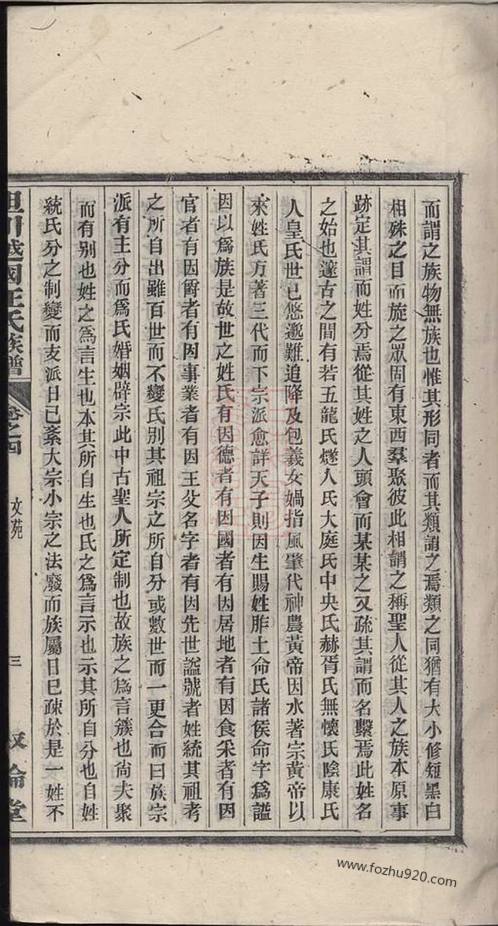 而謂之族物無族也惟其形同者而其類謂之焉類之同猶有大小修短黑白
相殊之目而族之眾固有東西羣聚彼此相謂之稱聖人從其人之族本原事
跡定其謂而姓分焉從其姓之人頭會而某某之又疏其謂而名繫焉此姓名
之始也邃古之間有若五龍氏燧人氏大庭氏中央氏赫胥氏無懷氏陰康氏
人皇氏世已悠邈難追降及包羲女媧指風肇代神農黃帝因水著宗黃帝以
來姓氏方著三代而下宗派愈詳天子則因生賜姓胙土命氏諸侯命字為諡
因以為族是故世之姓氏有因德者有因國者有因居地者有因食采者有因
官者有因爵者有因事業者有因王父名字者有因先世諡號者姓統其祖考
之所自出雖百世而不變氏別其祖宗之所自分或數世而一更合而曰族宗
派有主分而為氏婚姻辟宗此中古聖人所定制也故族之為言簇也尙夫聚
而有別也姓之為言生也本其所自生也氏之為言示也示其所自分也自姓
統氏分之制變而支派日已紊大宗小宗之法廢而族屬日已疎於是一姓不
旦川越國汪氏族譜
卷之四
文苑
三
叙倫堂
www.fozhu920.com